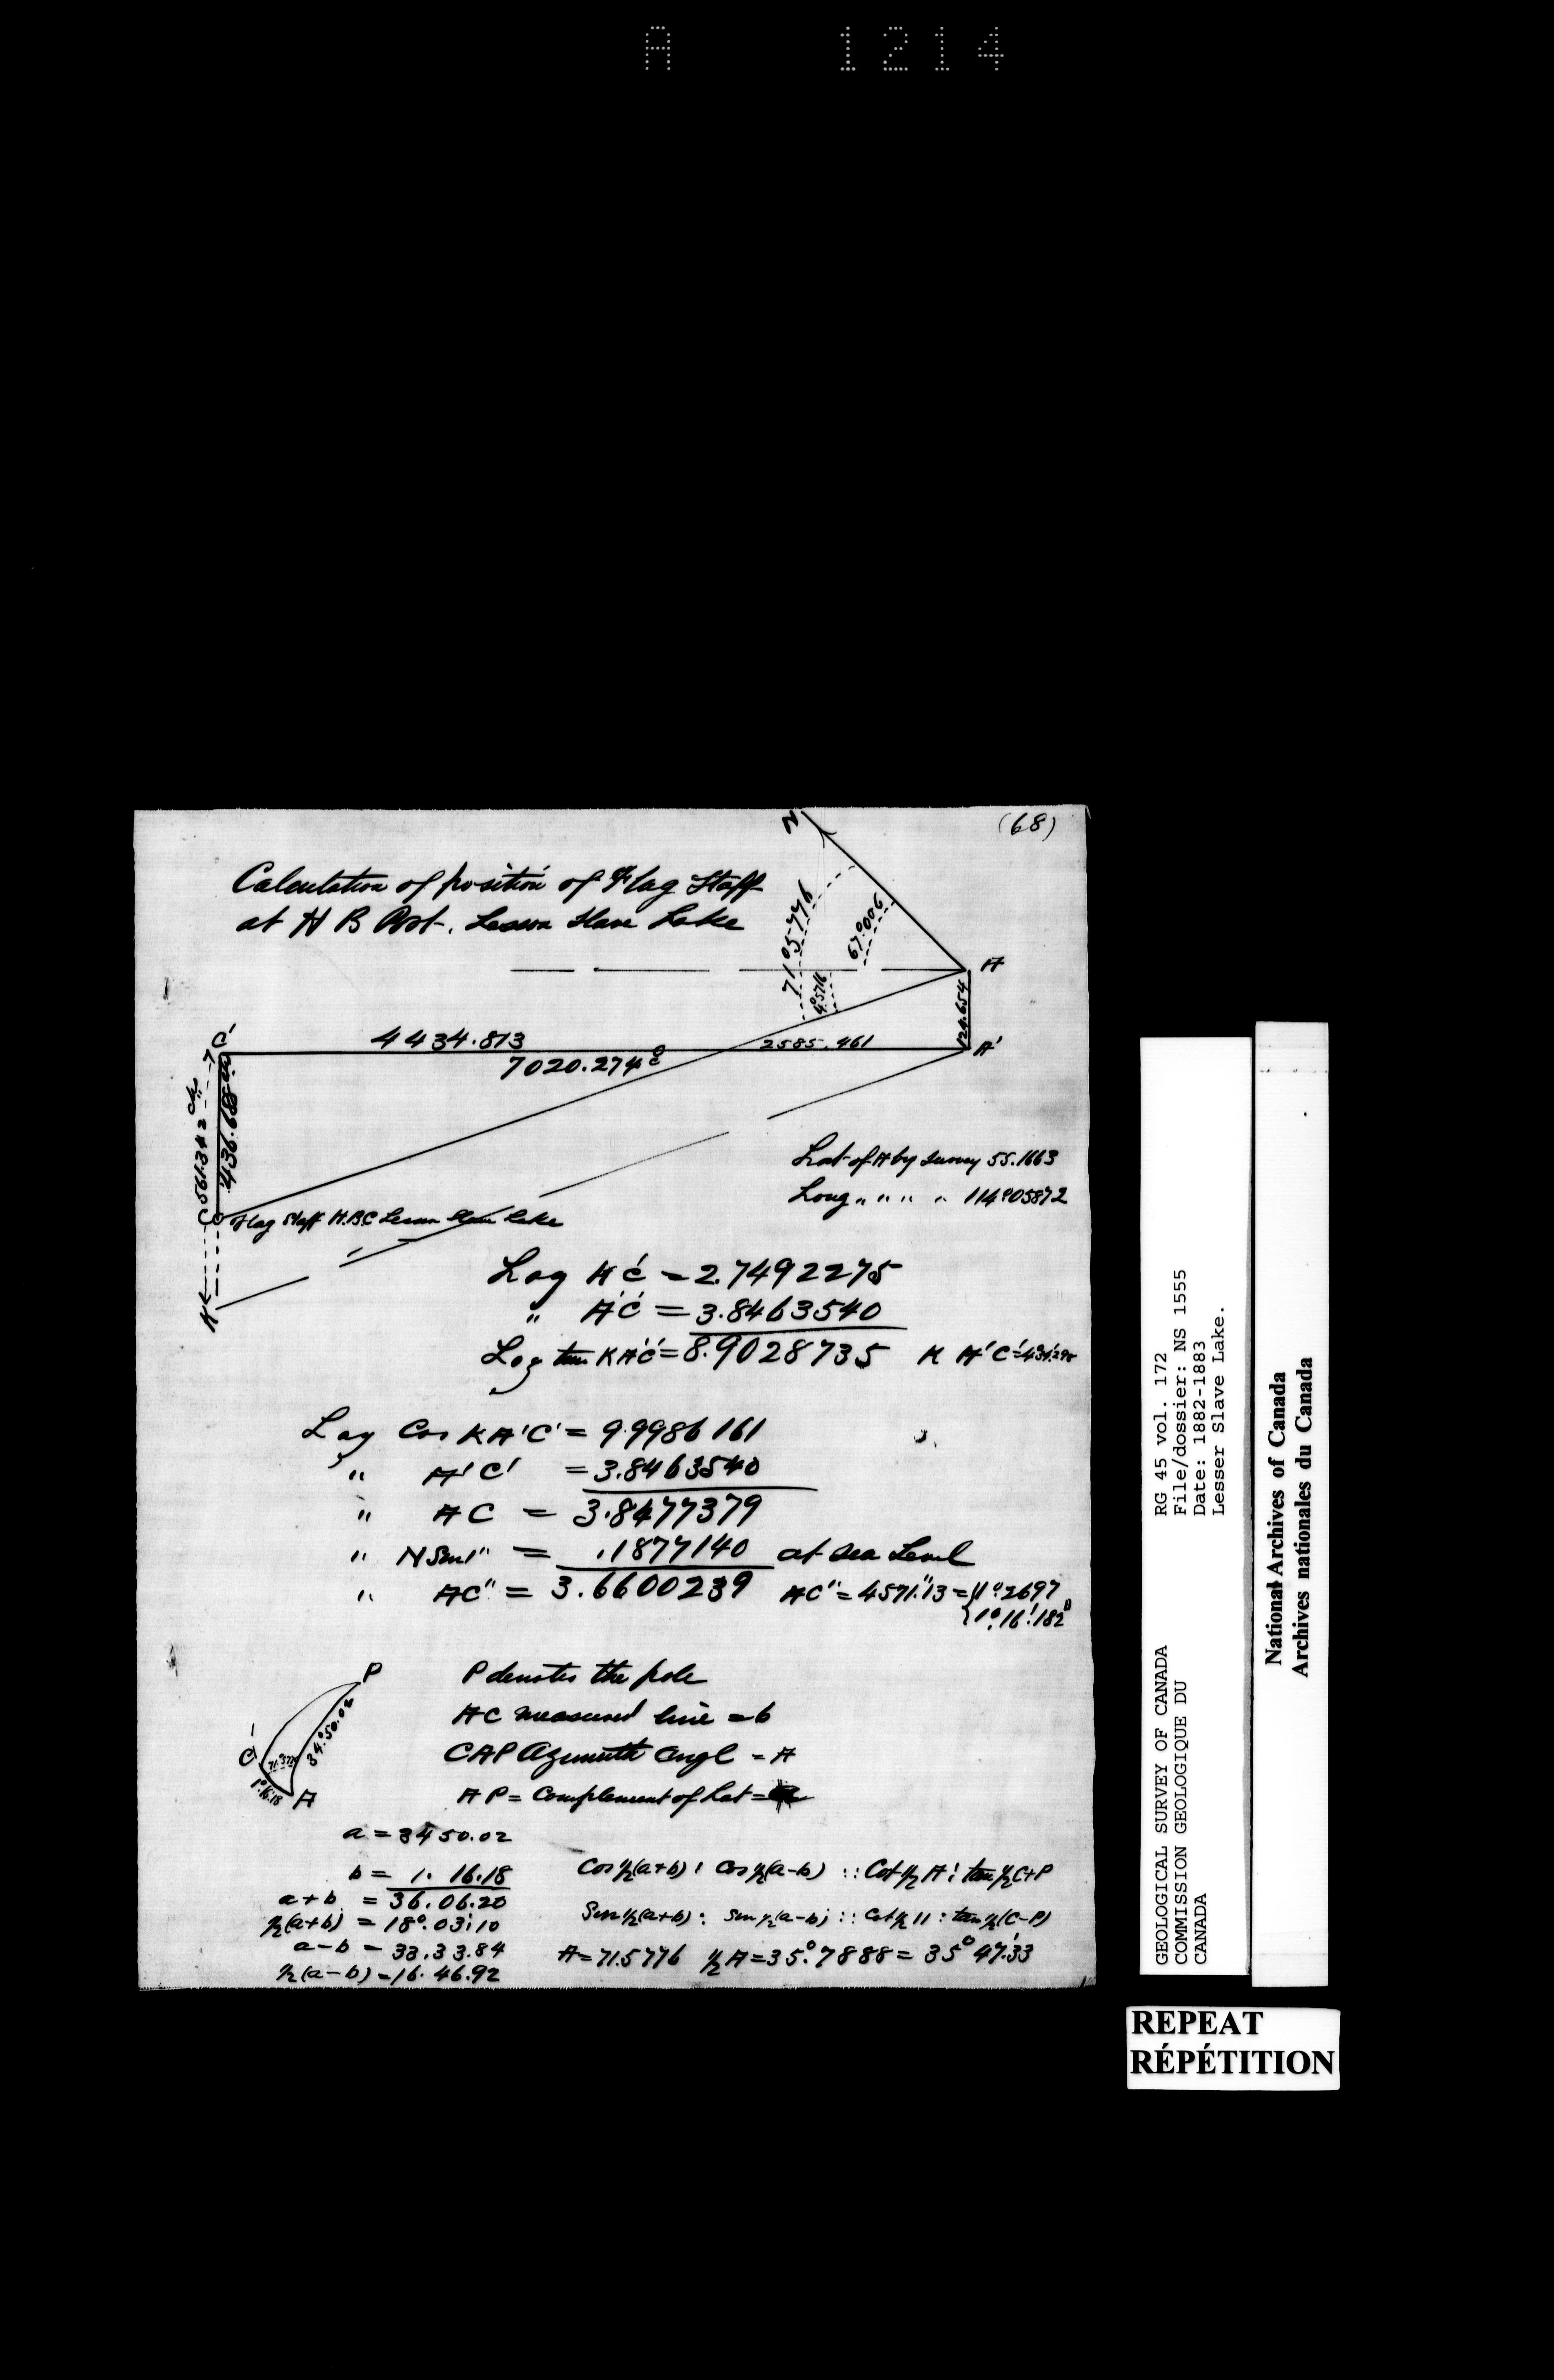 A 1214
(68)
Calculation of position of Flag Staff
at H B Post. Lesser Slave Lake
N
71°5776
67°.006
4°.5716
A
124.654
A'
C'
4434.813
2585.461
7020.274
561.342 chs
436.688
C
Flag Staff H.B.C Lesser Slave Lake
K
Lat of A by survey 55.1663
Long " " " " 114°05872
Log KC' = 2.7492275
" A'C' = 3.8463540
Log tan KA'C' = 8.9028735 K A'C' =
Log Cos KA'C' = 9.9986161
" A'C' = 3.8463540
" AC = 3.8477379
" N Sin 1" = .1877140 at sea Level
" AC" = 3.6600239 AC" = 4571".13 = { 1°.2697
{ 1°.16'.182
P
C'
34°.50.02
1°.16.18
A
P denotes the pole
AC measured line = b
CAP Azimuth Angl = A
AP = Complement of Lat =
a = 34 50.02
b = 1. 16.18
a+b = 36.06.20
½(a+b) = 18°.03'.10
a-b = 33.33.84
½(a-b) = 16. 46.92
Cos ½(a+b) : Cos ½(a-b) :: Cot ½ A : tan ½ C+P
Sin ½(a+b) : Sin ½(a-b) :: Cot ½ " : tan ½(C-P)
A = 71.5776 ½A = 35°.7888 = 35° 47'.33
GEOLOGICAL SURVEY OF CANADA
COMMISSION GEOLOGIQUE DU
CANADA
RG 45 vol. 172
File/dossier: NS 1555
Date: 1882-1883
Lesser Slave Lake.
National Archives of Canada
Archives nationales du Canada
REPEAT
RÉPÉTITION